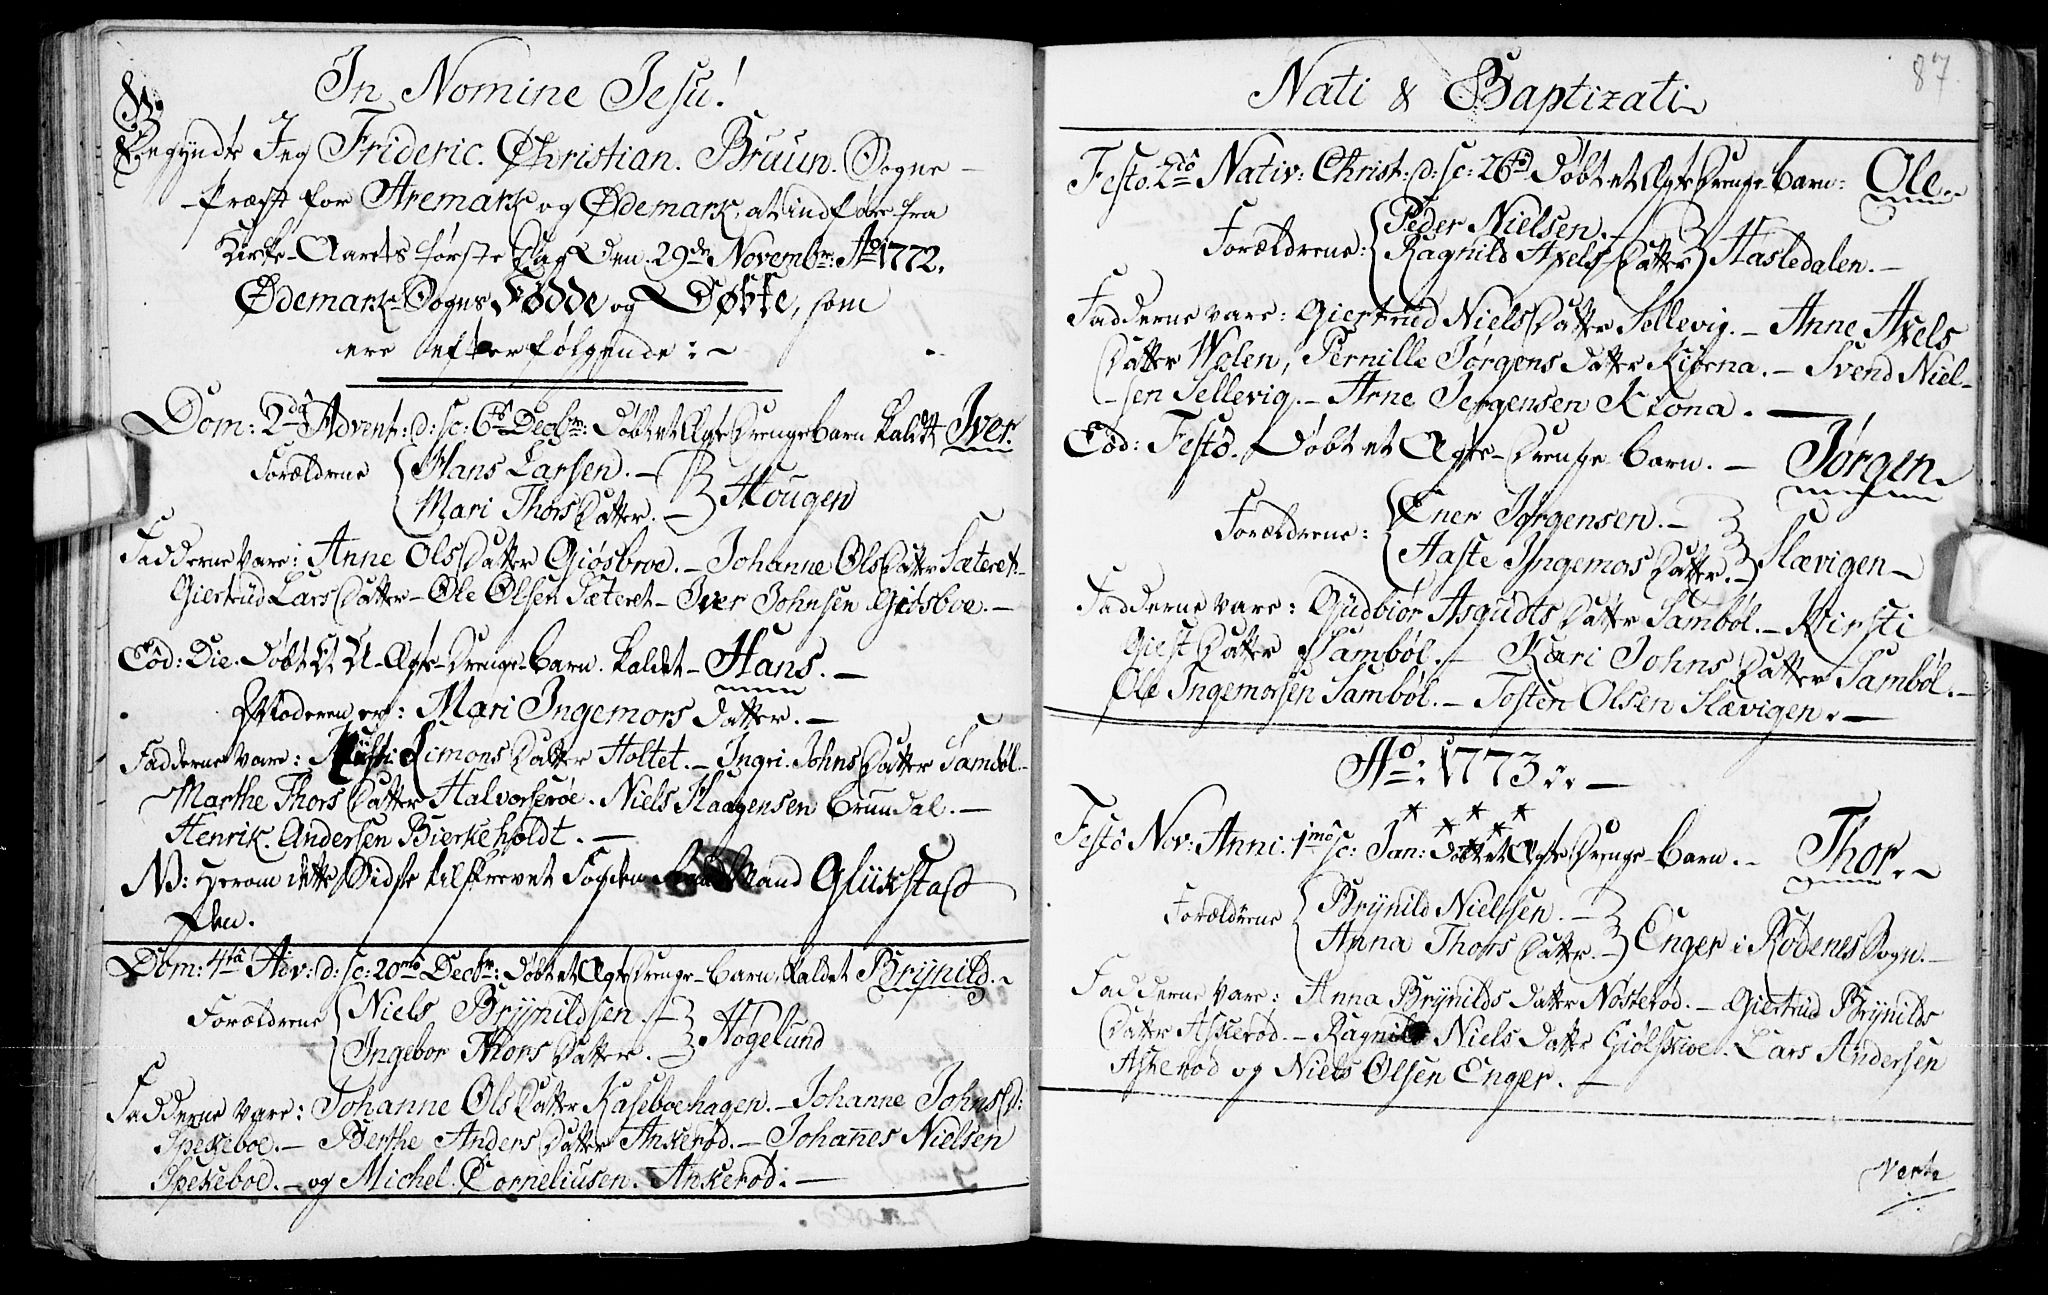 In Nomine Jesu!
Begyndte Jeg Frideric. Christian. Bruun. Sogne-
Præst for Aremark og Ødemark, at indføre fra
Kirke-Aarets første Dag Den. 29de Novembr: Ao 1772.
Ødemark-Sogns Fødde og Døbte, som
ere efterfølgende:~
Dom: 2da Advent: d: sc: 6to Decbr: Døbt et Ægte Drenge Barn kaldt Iver.
Forældrene Hans Larsen. - Hougen
Mari Thors Datter. -
Fadderne vare: Anne Ols Datter Giøsbroe. - Johanne Ols Datter Sæteret.-
Giertrud Lars Datter - Ole Olsen Sæteret - Iver Johnsen Giøsboe. -
Eôd: Die. Døbt Et U-Ægte-Drenge-Barn. kaldet - Hans. -
Moderen er: Mari Ingemors Datter. -
Fadderne vare: Simons Datter Holtet. - Ingri. Johns Datter Sambøl.-
Marthe Thors Datter Halvorserøe. Niels Haagensen Brundal. -
Henrik. Andersen Bierkeholdt. -
NB: Herom dette Sidste tilskrevet Fogden Glükstad
Den.
Dom: 4ta Adv: d: sc: 20mo Decbr: Døbt et Ægte Drenge-Barn, kaldet Brÿnild.~
Forældrene Niels Brÿnildsen. - Høgelund
Ingebor Thors Datter. -
Fadderne vare: Johanne Ols Datter Kaseboehagen. - Johanne Johns D:
Spekeboe. - Berthe Anders Datter Ankerød. - Johañes Nielsen
Spekeboe. - og Michel. Corneliusen. Ankerød: -
87
Nati & Baptizati
Festo. 2do Nativ: Christ: d: sc: 26to Døbt et Ægte Drenge-Barn: Ole.~
Forældrene: Peder Nielsen. - Hasledalen. -
Ragnild Axels Datter
Fadderne vare: Giertrud Niels Datter Sellevig. - Anne Axels
Datter Welen, Pernille Jørgens Datter Kiøna. - Svend Niel-
-sen Sellevig. - Arne Jørgensen Kiona. -
Eôd: Festô. Døbt et Ægte-Drenge Barn. - Jørgen.
Forældrene: Ener Jørgensen. - Slævigen -
Aaste Ingemors Datter. -
Fadderne vare: Gudbiør Asgudts Datter Sambøl. - Kirsti
Giest Datter Sambøl. - Kari Johns Datter Sambøl. -
Ole Ingemorsen Sambøl. - Tosten Olsen Slævigen. -
Ao: 1773. -
Festô Nov: Anni. 1mo sc: Jan: Døbt et Ægte Drenge-Barn. - Thor.~
Forældrene Brÿnild Nielssen. - Enger i Rødenes Sogn. -
Anna Thors Datter. -
Fadderne vare: Anna Brÿnilds Datter Nøsterød. - Giertrud Brÿnilds
Datter Askerød. - Ragnild Niels Datter Giølskoe. Lars Andersen
Askerød og Niels Olsen Enger. -
Verte